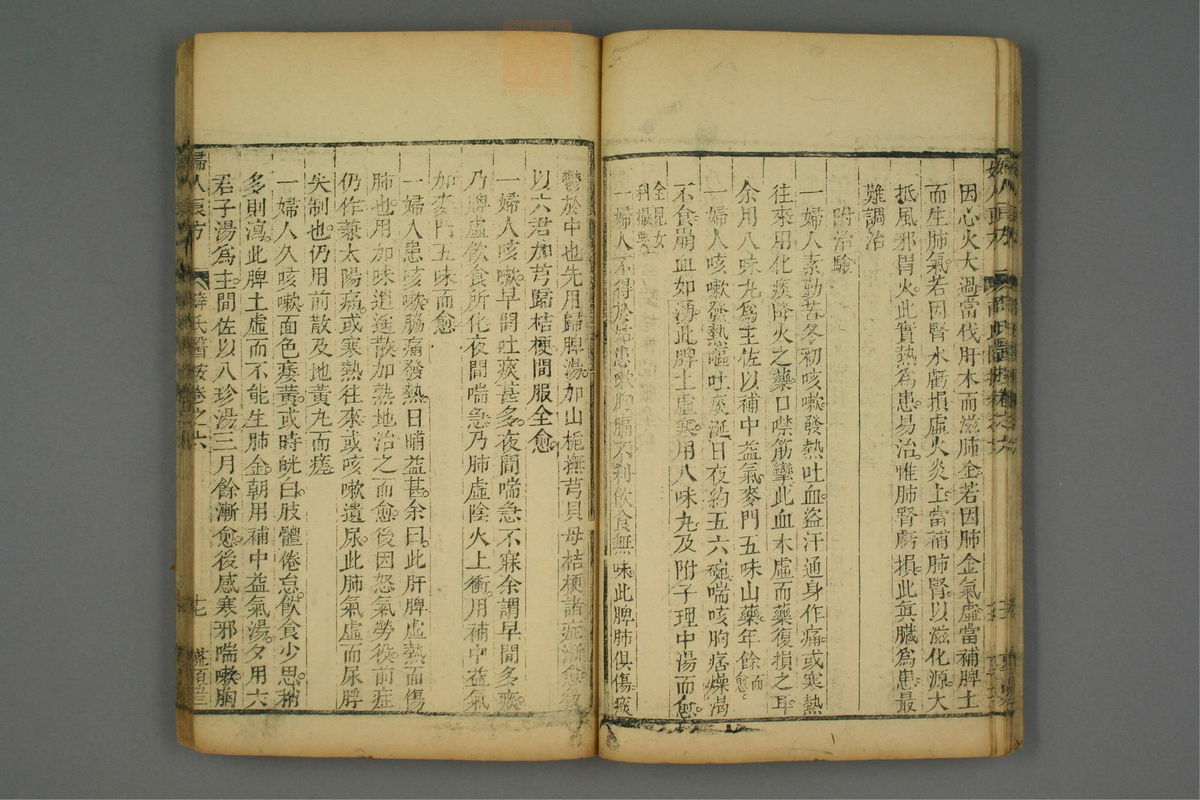 因心火大過當伐肝木而滋肺金若因肺金氣虛當補脾土
而生肺氣若因腎水虧損虛火炎上當補肺腎以滋化源大
抵風邪胃火此實熱為患易治惟肺腎虧損此真臟為患最
難調治
附治驗
一婦人素勤苦冬初咳嗽發熱吐血盜汗通身作痛或寒熱
往來用化痰降火之藥口噤筋攣此血本虛而藥復損之耳
余用八味丸為主佐以補中益氣麥門五味山藥年餘而愈
一婦人咳嗽發熱嘔吐痰涎日夜約五六碗喘咳胸痞燥渴
不食崩血如湧此脾土虛寒用八味丸及附子理中湯而愈
全是女
科撮要
一婦人不得於姑患嗽胸膈不利飲食無味此脾肺俱傷痰
鬱於中也先用歸脾湯加山梔撫芎貝母桔梗諸症漸愈後
以六君加芎歸桔梗間服全愈
一婦人咳嗽早間吐痰甚多夜間喘急不寐余謂早間多痰
乃脾虛飲食所化夜間喘急乃肺虛陰火上衝用補中益氣
加麥門五味而愈
一婦人患咳嗽脇痛發熱日晡益甚余曰此肝脾虛熱而傷
肺也用加味逍遙散加熟地治之而愈後因怒氣勞役前症
仍作兼太陽痛或寒熱往來或咳嗽遺尿此肺氣虛而尿脬
失制也仍用前散及地黃丸而瘥
一婦人久咳嗽面色痿黃或時㿠白肢體倦怠飲食少思稍
多則瀉此脾土虛而不能生肺金朝用補中益氣湯夕用六
君子湯為主間佐以八珍湯三月餘漸愈後感寒邪喘嗽胸
婦人良方 薛氏醫按卷之六 七